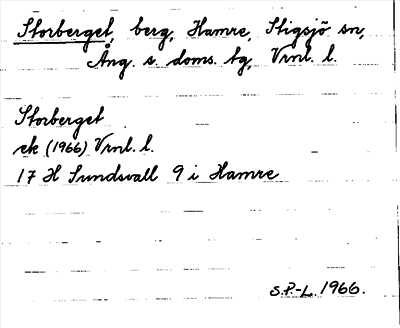 Storberget, berg, Hamre, Stigsjö sn,
Ång. s. doms. tg, Vrnl. l.
Storberget
ek (1966) Vrnl. l.
17 H Sundsvall 9 i Hamre
S.P.-L. 1966.